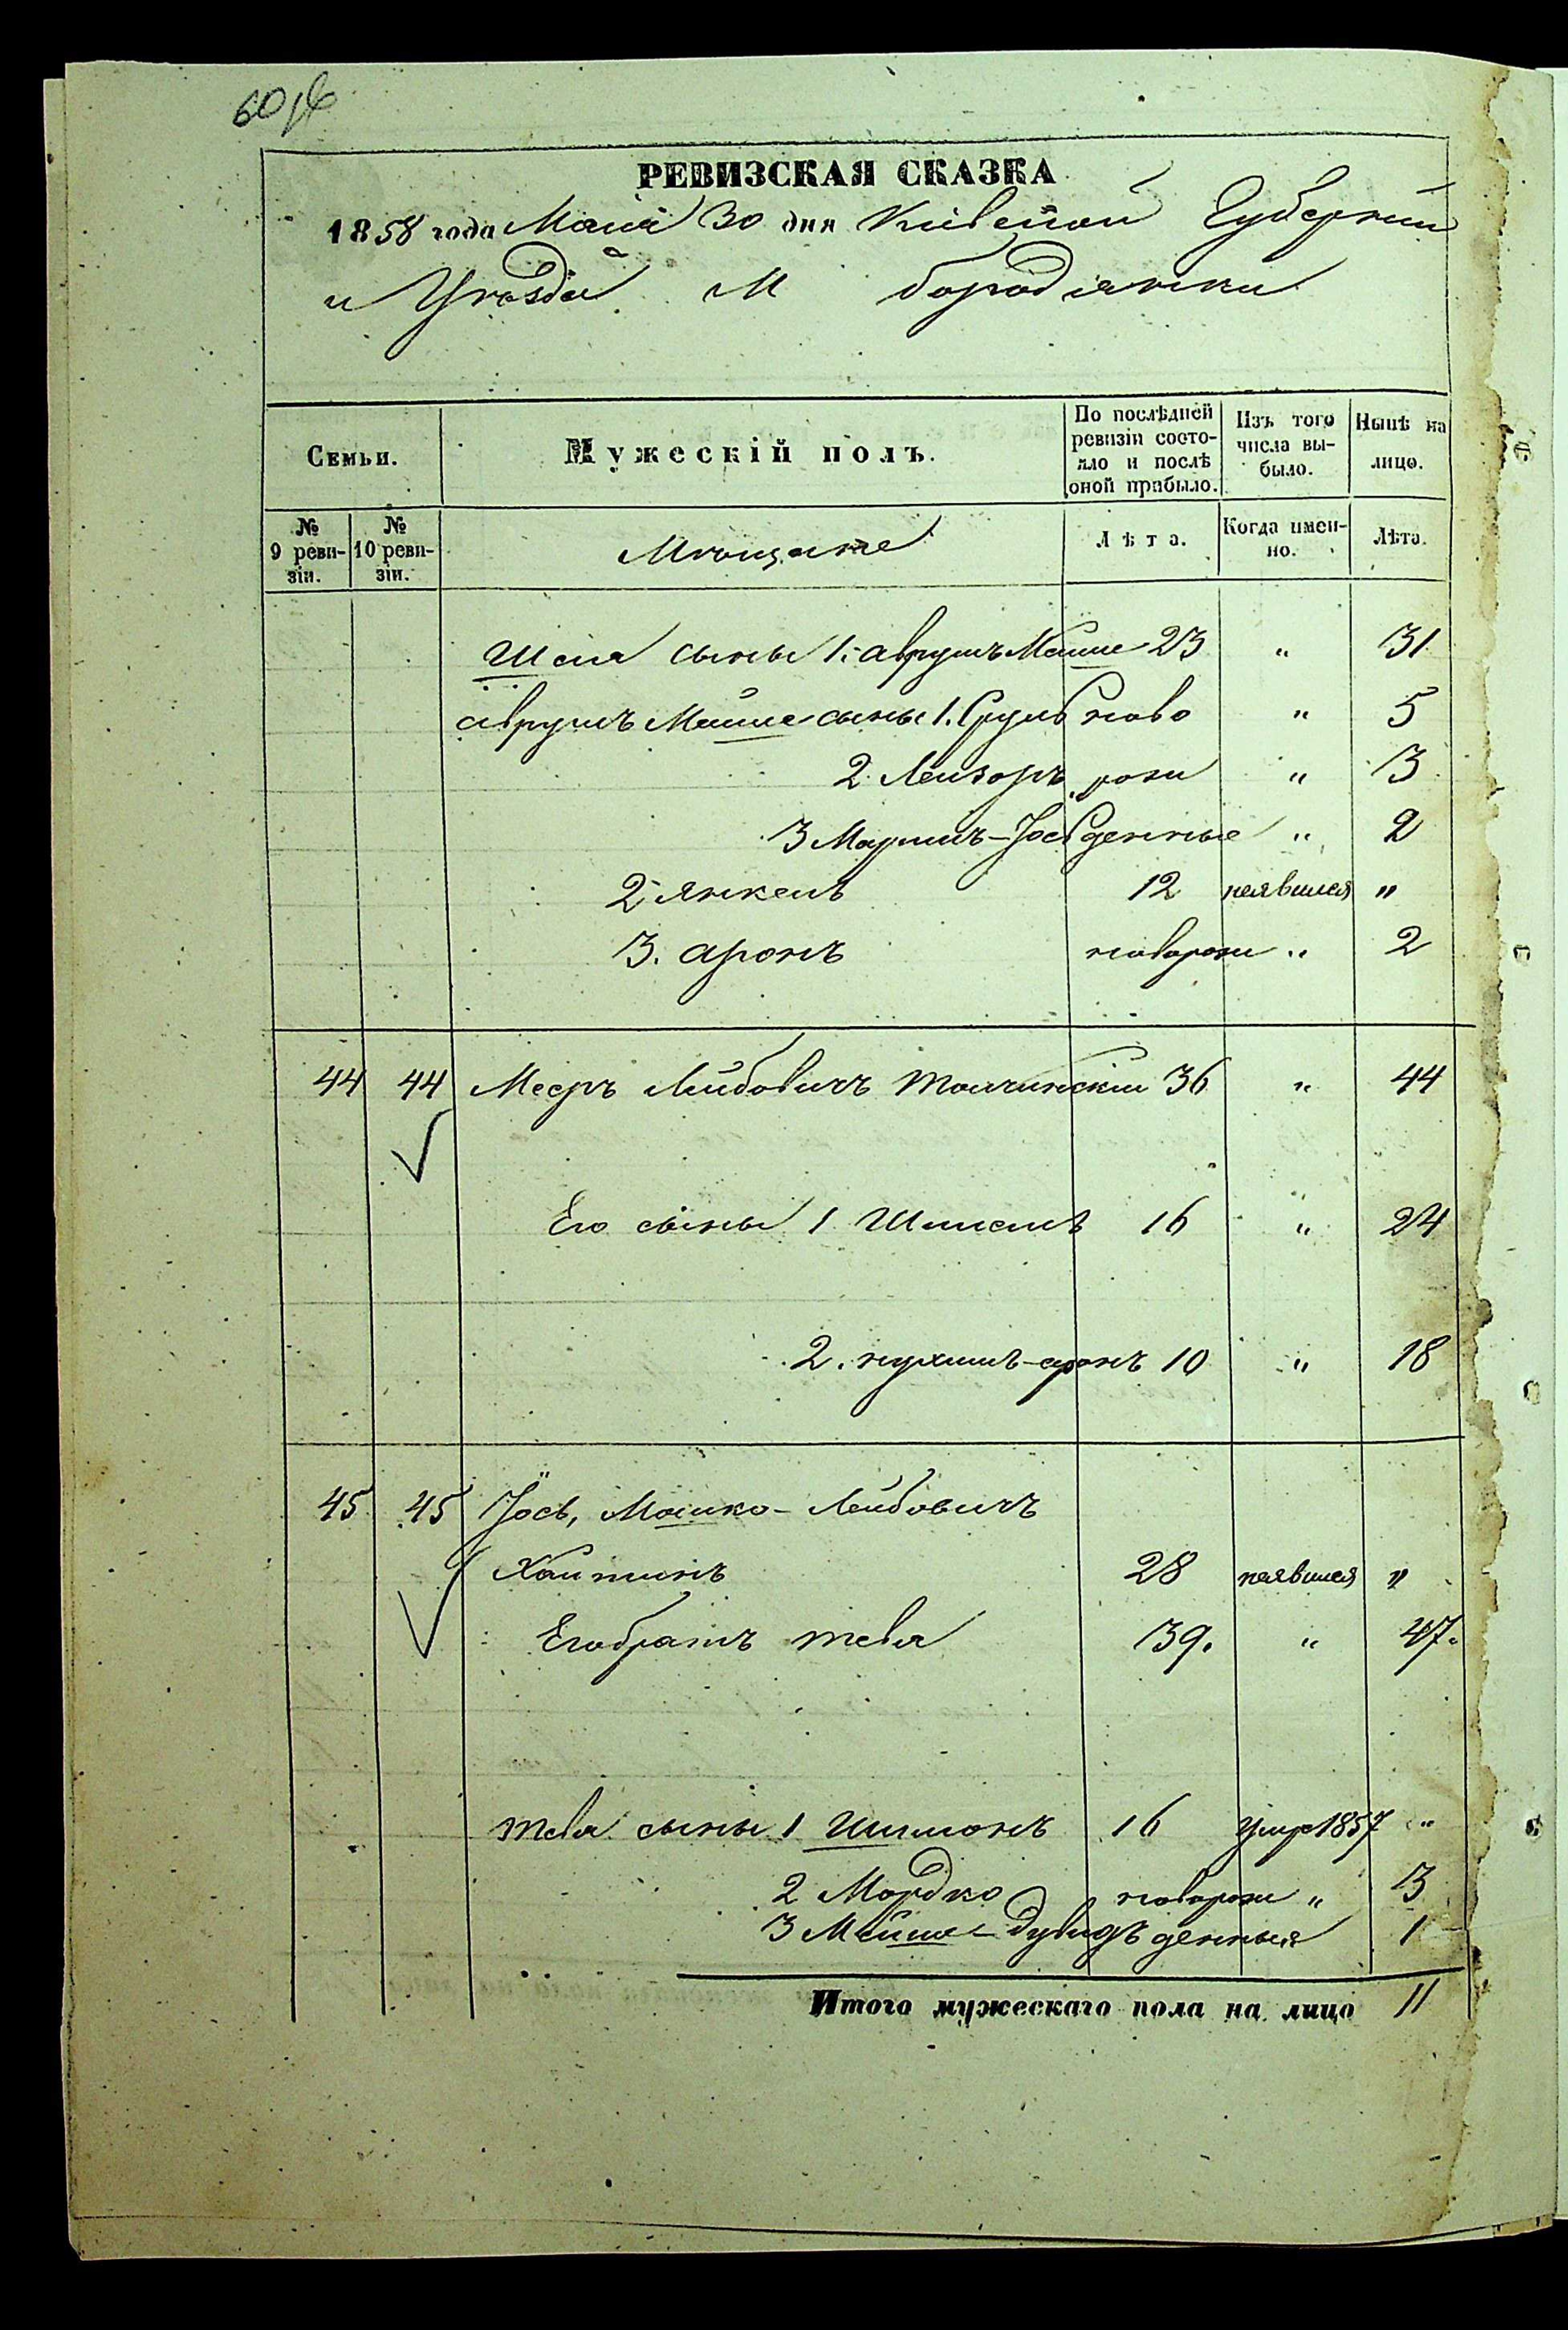 60
РЕВИЗСКАЯ СКАЗКА
1858 года Маія 30 дня Кіевской Губерніи
и Уезда М бородянки
Семьи. Мужескій полъ. По послѣдней ревизіи состояло и послѣ оной прибыло. Изъ того числа выбыло. Нынѣ на лицо.
№ 9 ревизіи. № 10 ревизіи. Мѣщане Лѣта. Когда именно. Лѣта.
Шая сыны 1. аврумъ Мошше 23 " 31
аврумъ Мошше сыны 1. Сруль ново " 5
2. Лейзоръ рож "  3
3 Маримъ-Іось денные " 2
2 Янкель 12 неявился "
3. аронъ новорож " 2
44 44 Мееръ Лейбовичъ Толчинскій 36 " 44
Его сыны 1 Шмиель 16 " 24
2. нухимъ-аронъ 10 " 18
45 45 Іось, Мошко-Лейбовичъ
Хайтинъ 28 неявился "
Его братъ тевя 39. " 47.
тевя сыны 1 Шимонъ 16 умре 1857 "
2 Мордко новорож " 3
3 Мойше-Дувидъ денныя 1
Итого мужескаго пола на лицо 11